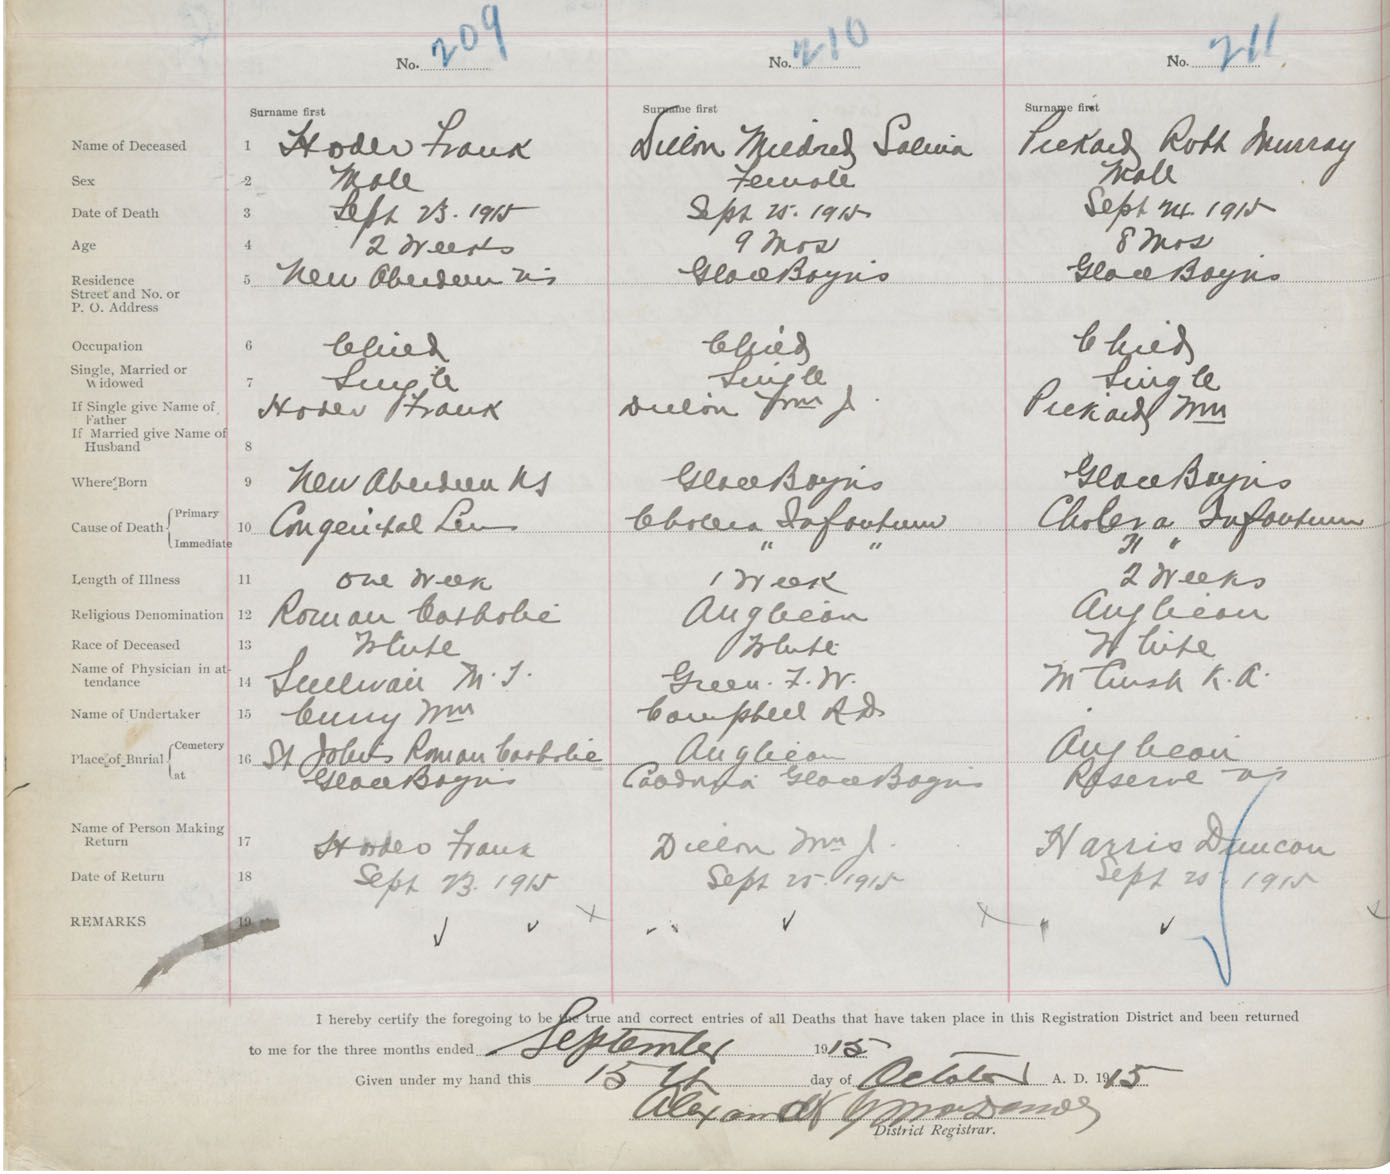 No. 209 No. 210 No. 211
Surname first Surname first Surname first
Name of Deceased 1 Hoder Frank Dillon Mildred Salina Pickard Roth Murray
Sex 2 Male Female Male
Date of Death 3 Sept 23. 1915 Sept 25. 1915 Sept 24. 1915
Age 4 2 Weeks 9 Mos 8 Mos
Residence 5 New Aberdeen NS Glace Bay NS Glace Bay NS
Street and No. or
P. O. Address
Occupation 6 Child Child Child
Single, Married or
Widowed 7 Single Single Single
If Single give Name of Hoder Frank Dillon Wm J. Pickard Wm
Father
If Married give Name of
Husband 8
Where Born 9 New Aberdeen NS Glace Bay NS Glace Bay NS
Cause of Death Primary 10 Congenital Cholera Infantum Cholera Infantum
Immediate " " " "
Length of Illness 11 One Week 1 Week 2 Weeks
Religious Denomination 12 Roman Catholic Anglican Anglican
Race of Deceased 13 White White White
Name of Physician in at-
tendance 14 Sullivan M. T. Green. F. W. K. A.
Name of Undertaker 15 Curry Wm Campbell A D
Place of Burial Cemetery 16 St Johns Roman Catholic Anglican Anglican
at Glace Bay NS Glace Bay NS Reserve NS
Name of Person Making
Return 17 Hoder Frank Dillon Wm J. Harris Duncan
Date of Return 18 Sept 23. 1915 Sept 25. 1915 Sept 25. 1915
REMARKS 19
I hereby certify the foregoing to be the true and correct entries of all Deaths that have taken place in this Registration District and been returned
to me for the three months ended September 1915
Given under my hand this 15th day of October A. D. 1915
District Registrar.